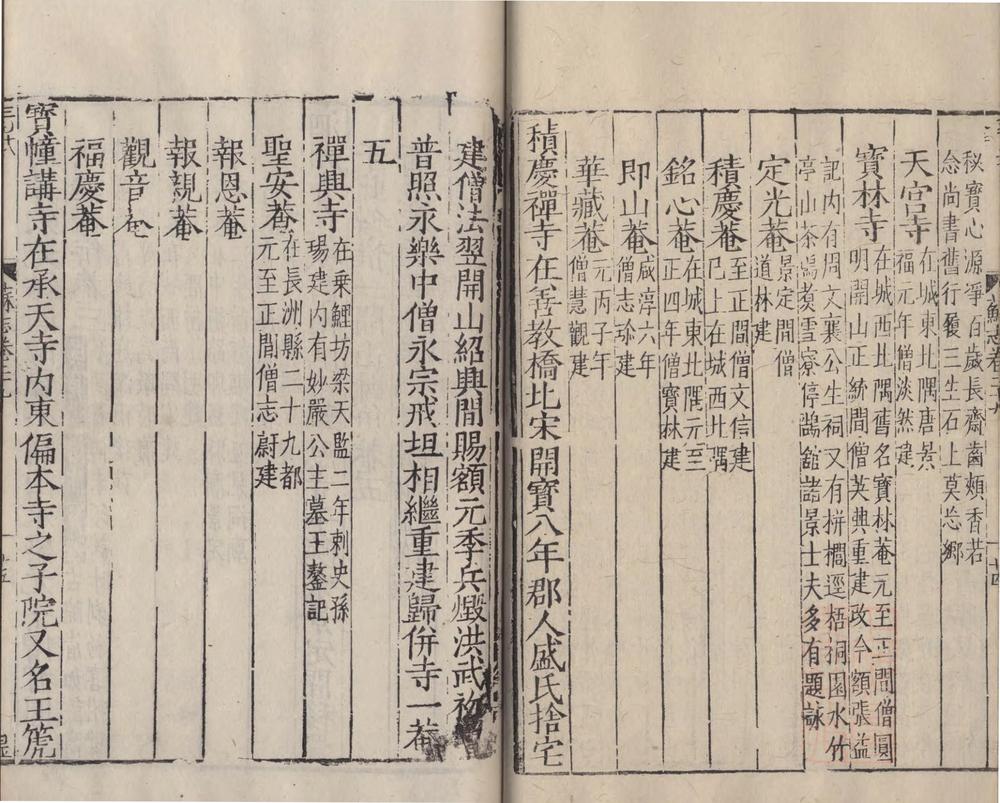 秘寶心源爭百歲長齋齒頰香若
念尚書舊行履三生石上莫忘鄉
天宮寺在城東北隅唐景
福元年僧淡然建
寶林寺在城西北隅舊名寶林菴元至正間僧圓
明開山正統間僧英典重建改今額張益
記內有周文襄公生祠又有拼櫚逕梧桐園水竹
亭山茶塢煑雪寮停鷗館諸景士夫多有題詠
定光菴景定間僧
道林建
積慶菴至正間僧文信建
已上在城西北隅
銘心菴在城東北隅元至
正四年僧寶林建
即山菴咸淳六年
僧志珍建
華藏菴元丙子年
僧慧觀建
積慶禪寺在善教橋北宋開寶八年郡人盛氏捨宅
建僧法翌開山紹興間賜額元季兵燬洪武初
普照永樂中僧永宗戒坦相繼重建歸併寺一菴
五
禪興寺在乗鯉坊梁天監二年刺史孫
瑒建內有妙嚴公主墓王鏊記
聖安菴在長洲縣二十九都
元至正間僧志蔚建
報恩菴
報親菴
觀音菴
福慶菴
寶幢講寺在承天寺內東偏本寺之子院又名王篪